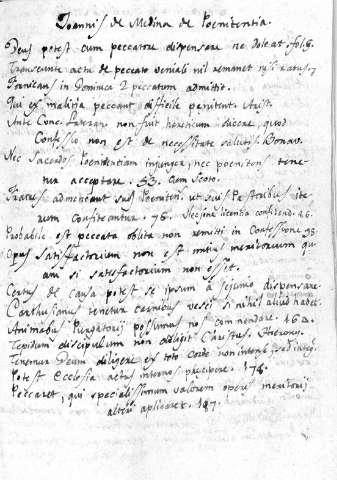 Joannis de Medina de Poenitentia.
Deus potest cum peccatore dispensare ne doleat. fol. 8.
Transeunte actu de peccato veniali nil remanet nisi
in Dominica 2 peccatum admittit.
Qui ex malitia peccant difficile penitent. Arist.
Ante Conc. Lateran. non fuit haereticum dicere, quod
Confessio non est de necessitate salutis. Bonav.
Nec Sacerdos Poenitentiam injungere, nec poenitens tene
tur acceptare. 53. cum Scoto.
Fratres admittant suos Poenitentes ut suis Pastoribus ite
rum confiteantur. 76. licentia 26.
Probabile est peccata oblita non remitti in Confessione 93.
Opus satisfactorium non est minus meritorium qu
am si satisfactorium non esset.
Certus de causa potest se ipsum a jejunio dispensare.
Carthusianus tenetur carnibus vesci si nihil aliud habet.
Animabus Purgatorij possumus nos commendare.
Tepidum discipulum non Christus.
Tenemur Deum diligere ex toto corde non
Potest Ecclesia actus internos praecipere. 178.
Peccaret, qui specialissimum valorem operis meritorij
alteri applicaret. 197.